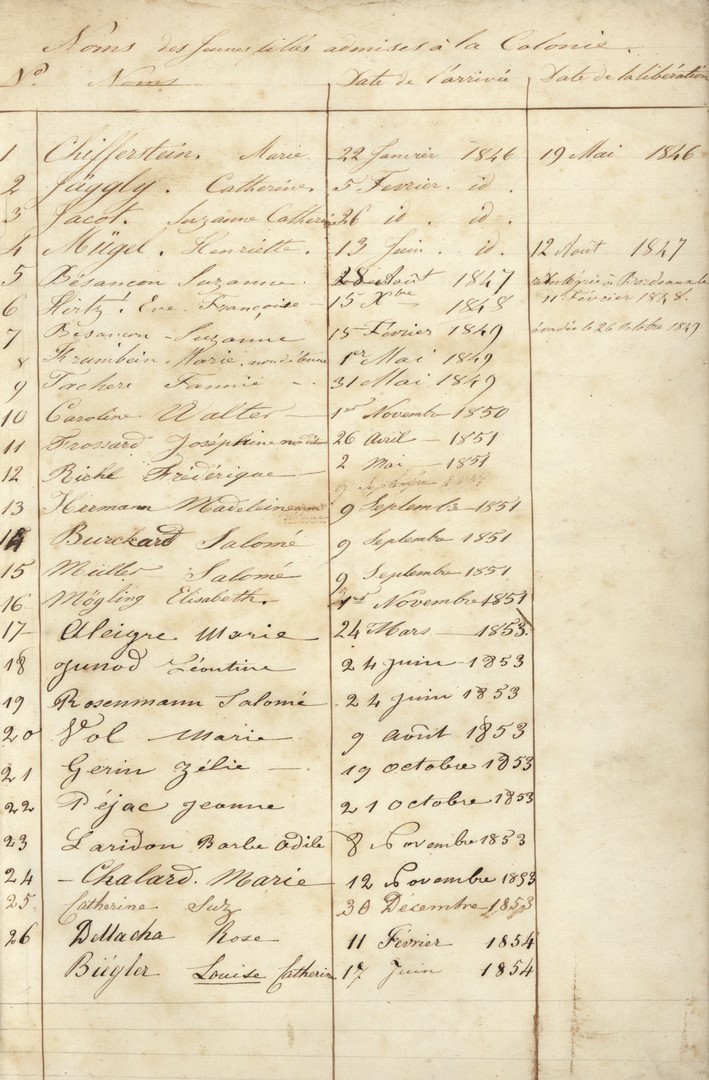 Noms des jeunes filles admises à la Colonie.
No. Noms Date de l'arrivée Date de la libération
1 Chifferstein. Marie 22 Janvier 1846 19 Mai 1846
2 Jüggly. Catherine. 5 Fevrier. id.
3 Jacot. Suzanne Catherine 26 id. id.
4 Mügel. Henriette. 13 Juin. id. 12 Aout 1847
5 Bésançon Suzanne 28 Aout 1847 réintégrée à Bordeaux le
6 Hirtz. Eve Françoise - 15 Xbre 1848 11 Fevrier 1848.
7 Besançon - Suzanne 15 Février 1849 évadée le 26 Octobre 1849
8 Krumbein Marie. 1er Mai 1849
9 Tachert Fannie - 31 Mai 1849
10 Caroline Walter - 1er Novembre 1850
11 Frossard Joséphine 26 Avril - 1851
12 Riehl Frédérique - 2 Mai - 1851
9 Septembre
13 Hermann Madeleine 9 Septembre 1851
14 Burckard Salomé 9 Septembre 1851
15 Müller Salomé 9 Septembre 1851
16 Mögling Elisabeth. 1er Novembre 1851
17 Aleigre Marie 24 Mars - 1853.
18 Junod Léontine 24 juin - 1853
19 Rosenmann Salomé 24 juin 1853
20 Vol Marie 9 août 1853
21 Gerin Zélie - 19 octobre 1853
22 Péjac Jeanne 21 Octobre 1853
23 Laridon Barbe Odile 8 Novembre 1853
24 - Chalard. Marie 12 Novembre 1853
25 Catherine Suz 30 Décembre 1853
26 Dellacha Rose 11 Février 1854
Biégler Louise Catherine 17 Juin 1854